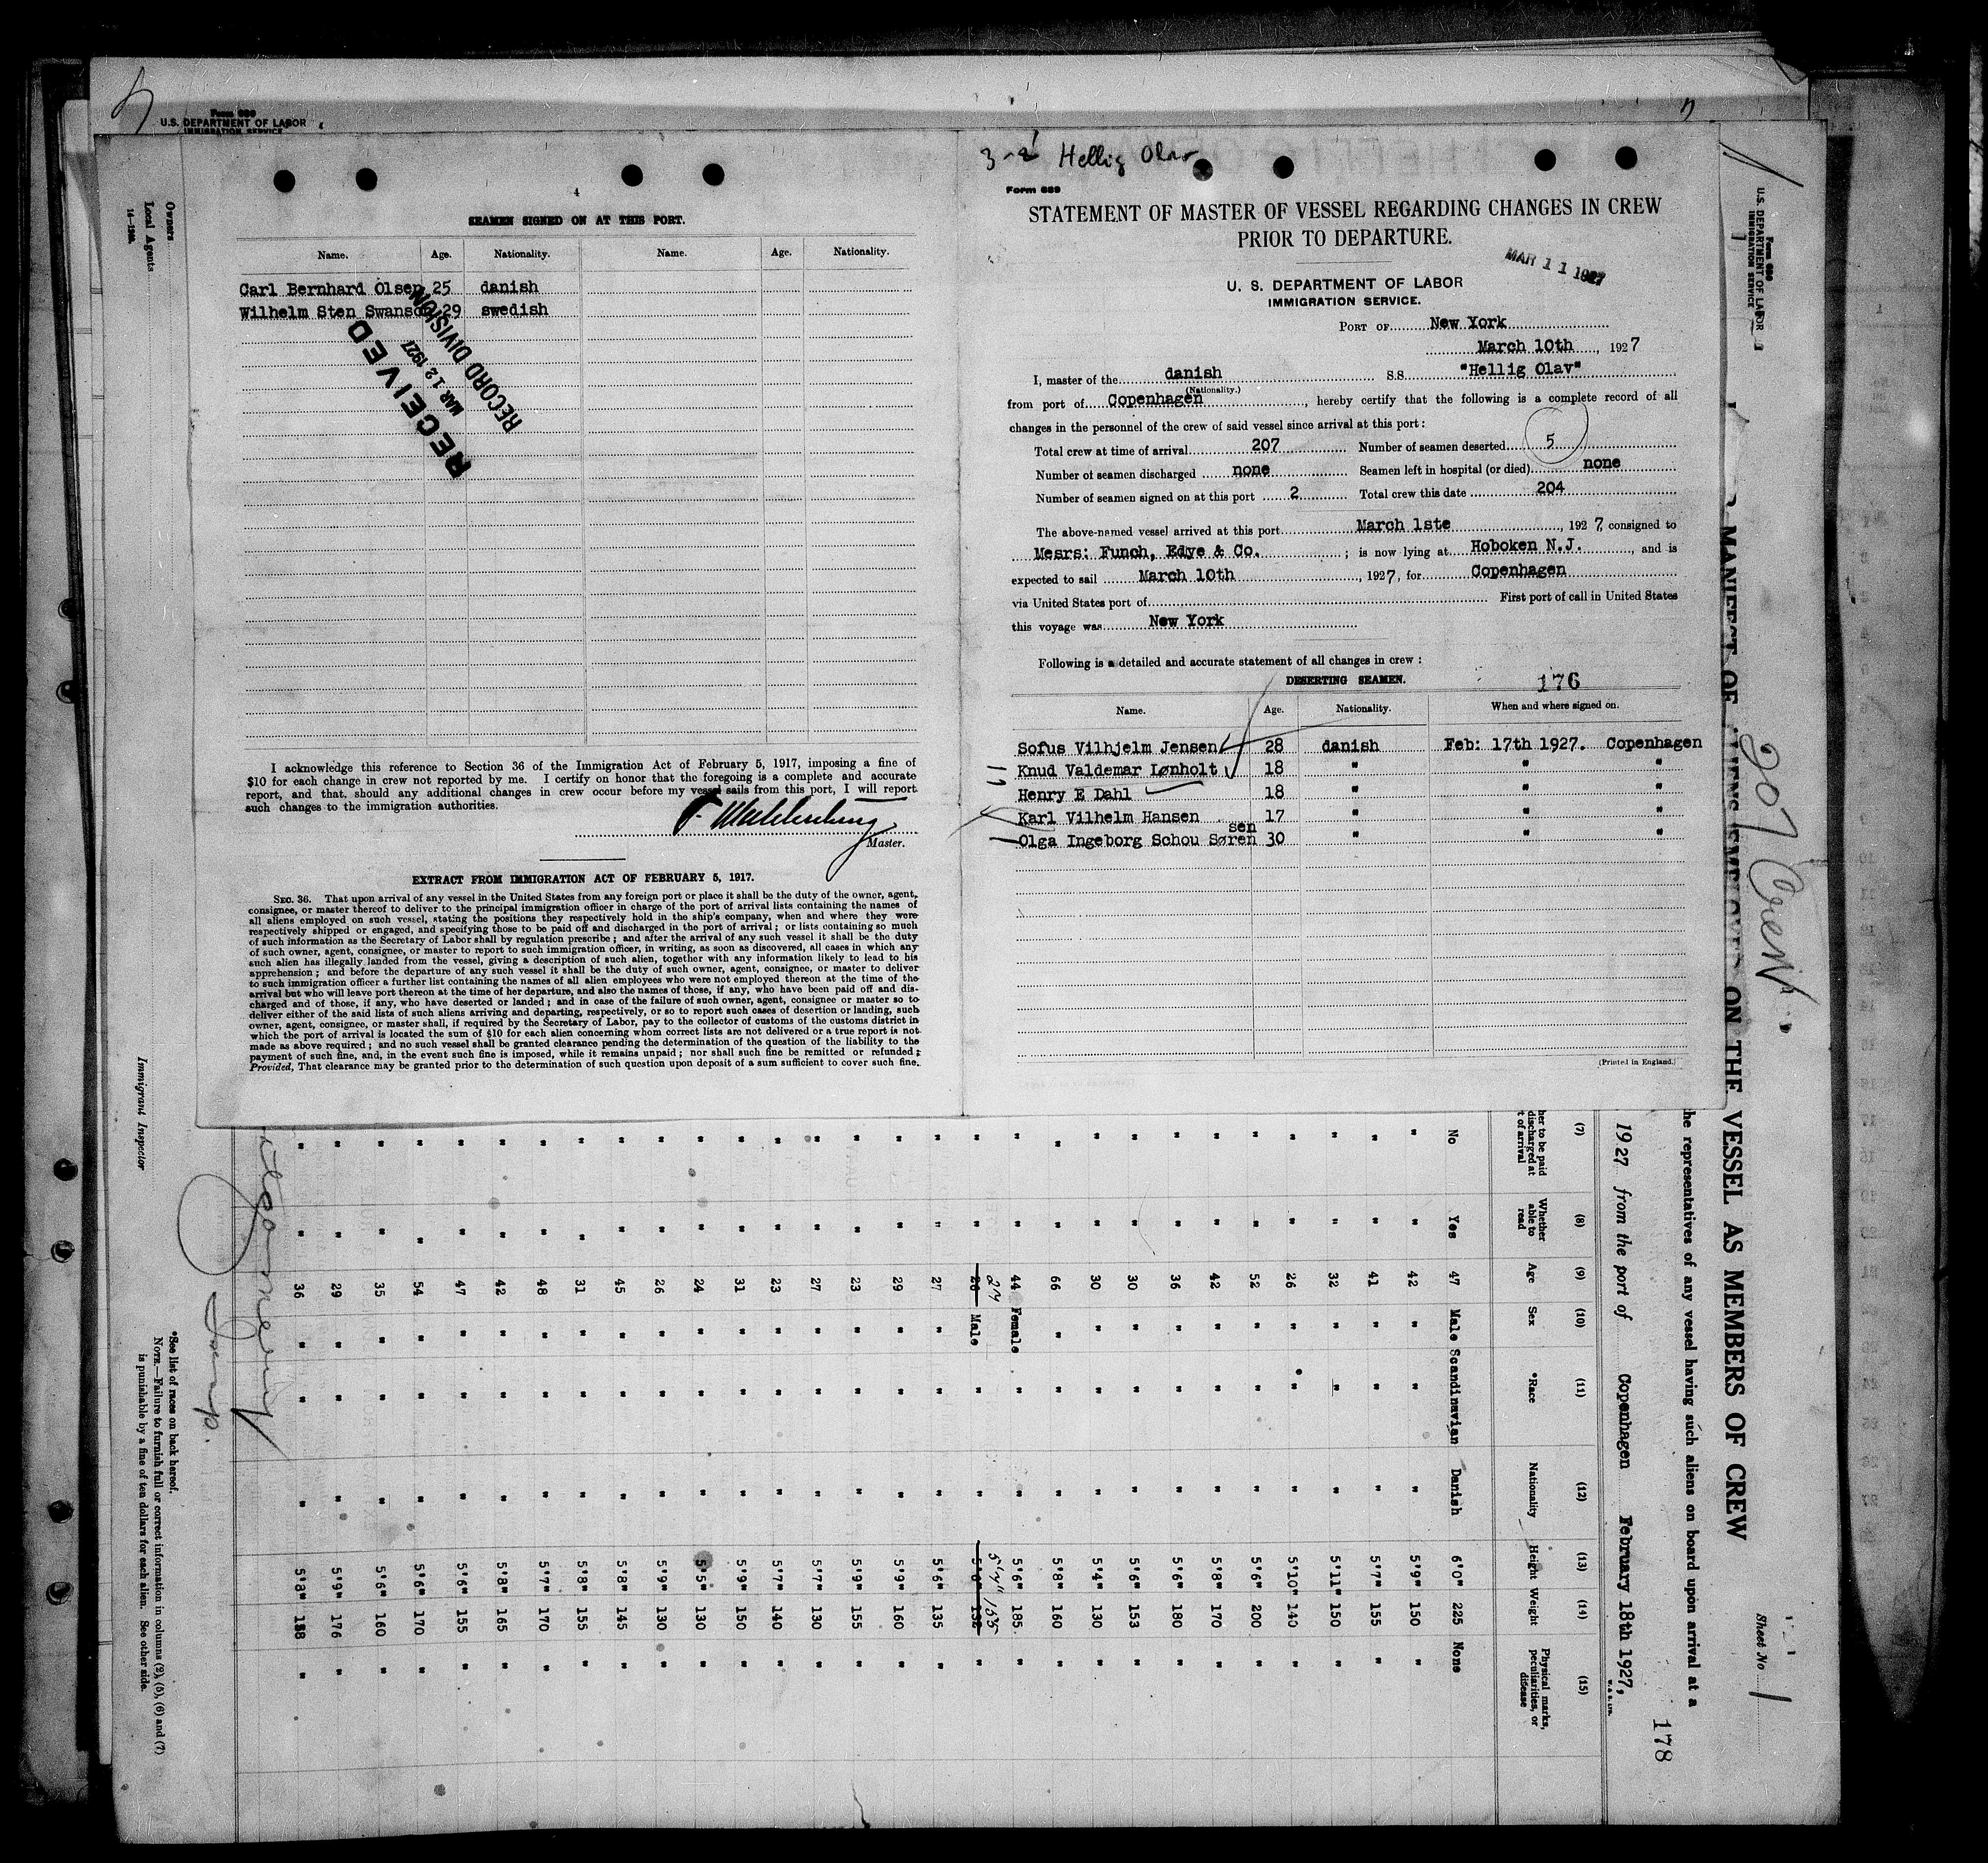 Form 689
U.S. DEPARTMENT OF LABOR
IMMIGRATION SERVICE
Owners
Local Agents
14—1240.
Immigrant Inspector
4
SEAMEN SIGNED ON AT THIS PORT.
Name. Age. Nationality. Name. Age. Nationality.
Carl Bernhard Olsen 25 danish
Wilhelm Sten Swanson 29 swedish
RECEIVED
MAR 12 1927
RECORD DIVISION
I acknowledge this reference to Section 36 of the Immigration Act of February 5, 1917, imposing a fine of
$10 for each change in crew not reported by me. I certify on honor that the foregoing is a complete and accurate
report, and that, should any additional changes in crew occur before my vessel sails from this port, I will report
such changes to the immigration authorities.
Master.
EXTRACT FROM IMMIGRATION ACT OF FEBRUARY 5, 1917.
SEC. 36. That upon arrival of any vessel in the United States from any foreign port or place it shall be the duty of the owner, agent,
consignee, or master thereof to deliver to the principal immigration officer in charge of the port of arrival lists containing the names of
all aliens employed on such vessel, stating the positions they respectively hold in the ship's company, when and where they were
respectively shipped or engaged, and specifying those to be paid off and discharged in the port of arrival; or lists containing so much
of such information as the Secretary of Labor shall by regulation prescribe; and after the arrival of any such vessel it shall be the duty
of such owner, agent, consignee, or master to report to such immigration officer, in writing, as soon as discovered, all cases in which any
such alien has illegally landed from the vessel, giving a description of such alien, together with any information likely to lead to his
apprehension; and before the departure of any such vessel it shall be the duty of such owner, agent, consignee, or master to deliver
to such immigration officer a further list containing the names of all alien employees who were not employed thereon at the time of the
arrival but who will leave port thereon at the time of her departure, and also the names of those, if any, who have been paid off and dis-
charged and of those, if any, who have deserted or landed; and in case of the failure of such owner, agent, consignee or master so to
deliver either of the said lists of such aliens arriving and departing, respectively, or so to report such cases of desertion or landing, such
owner, agent, consignee, or master shall, if required by the Secretary of Labor, pay to the collector of customs of the customs district in
which the port of arrival is located the sum of $10 for each alien concerning whom correct lists are not delivered or a true report is not
made as above required; and no such vessel shall be granted clearance pending the determination of the question of the liability to the
payment of such fine, and, in the event such fine is imposed, while it remains unpaid; nor shall such fine be remitted or refunded;
Provided, That clearance may be granted prior to the determination of such question upon deposit of a sum sufficient to cover such fine.
3-2 Hellig Olav
Form 689
STATEMENT OF MASTER OF VESSEL REGARDING CHANGES IN CREW
PRIOR TO DEPARTURE.
MAR 11 1927
U. S. DEPARTMENT OF LABOR
IMMIGRATION SERVICE.
PORT OF New York
March 10th, 1927
I, master of the danish S.S. "Hellig Olav"
(Nationality.)
from port of Copenhagen, hereby certify that the following is a complete record of all
changes in the personnel of the crew of said vessel since arrival at this port:
Total crew at time of arrival 207 Number of seamen deserted 5
Number of seamen discharged none Seamen left in hospital (or died) none
Number of seamen signed on at this port 2 Total crew this date 204
The above-named vessel arrived at this port March 1ste, 1927 consigned to
Mesrs: Funch, Edye & Co.; is now lying at Hoboken N.J., and is
expected to sail March 10th, 1927, for Copenhagen
via United States port of First port of call in United States
this voyage was New York
Following is a detailed and accurate statement of all changes in crew:
DESERTING SEAMEN. 176
Name. Age. Nationality. When and where signed on.
Sofus Vilhjelm Jensen 28 danish Feb: 17th 1927. Copenhagen
Knud Valdemar Lønholt 18 " " "
Henry E Dahl 18 " " "
Karl Vilhelm Hansen 17 " " "
sen
Olga Ingeborg Schou Søren 30 " " "
(Printed in England.)
Form 689
U.S. DEPARTMENT OF LABOR
IMMIGRATION SERVICE
207 Crew
Sheet No 1
ON THE VESSEL AS MEMBERS OF CREW
the representatives of any vessel having such aliens on board upon arrival at a
178
1927 from the port of Copenhagen February 18th 1927,
(7) (8) (9) (10) (11) (12) (13) (14) (15)
her to be paid discharged at t of arrival Whether able to read Age Sex *Race Nationality Height Weight Physical marks, peculiarities, or disease
No Yes 47 Male Scandinavian Danish 6'0" 225 None
" " 42 " " " 5'9" 150 "
" " 41 " " " 5'7" 155 "
" " 32 " " " 5'11" 150 "
" " 26 " " " 5'10" 140 "
" " 52 " " " 5'6" 200 "
" " 42 " " " 5'8" 170 "
" " 36 " " " 5'6" 180 "
" " 30 " " " 5'6" 153 "
" " 30 " " " 5'4" 130 "
" " 66 " " " 5'8" 160 "
" " 44 Female " " 5'6" 185 "
24 5'4" 135
" " 26 Male " " "
" " 27 " " " 5'6" 135 "
" " 29 " " " 5'9" 160 "
" " 23 " " " 5'9" 155 "
" " 27 " " " 5'7" 130 "
" " 23 " " " 5'7" 140 "
" " 31 " " " 5'9" 150 "
" " 24 " " " 5'5" 130 "
" " 26 " " " 5'9" 130 "
" " 45 " " " 5'8" 145 "
" " 31 " " " 5'8" 155 "
" " 48 " " " 5'7" 170 "
" " 42 " " " 5'8" 165 "
" " 47 " " " 5'6" 155 "
" " 54 " " " 5'6" 170 "
" " 35 " " " 5'6" 160 "
" " 29 " " " 5'9" 176 "
" " 36 " " " 5'8" 188 "
*See list of races on back hereof.
NOTE.—Failure to furnish full or correct information in columns (2), (5), (6) and (7)
is punishable by a fine of ten dollars for each alien. See other side.